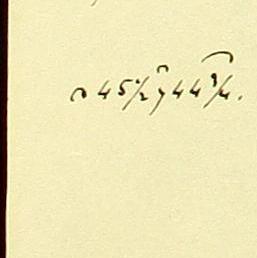 a 45 1/2 y 44 3/4.